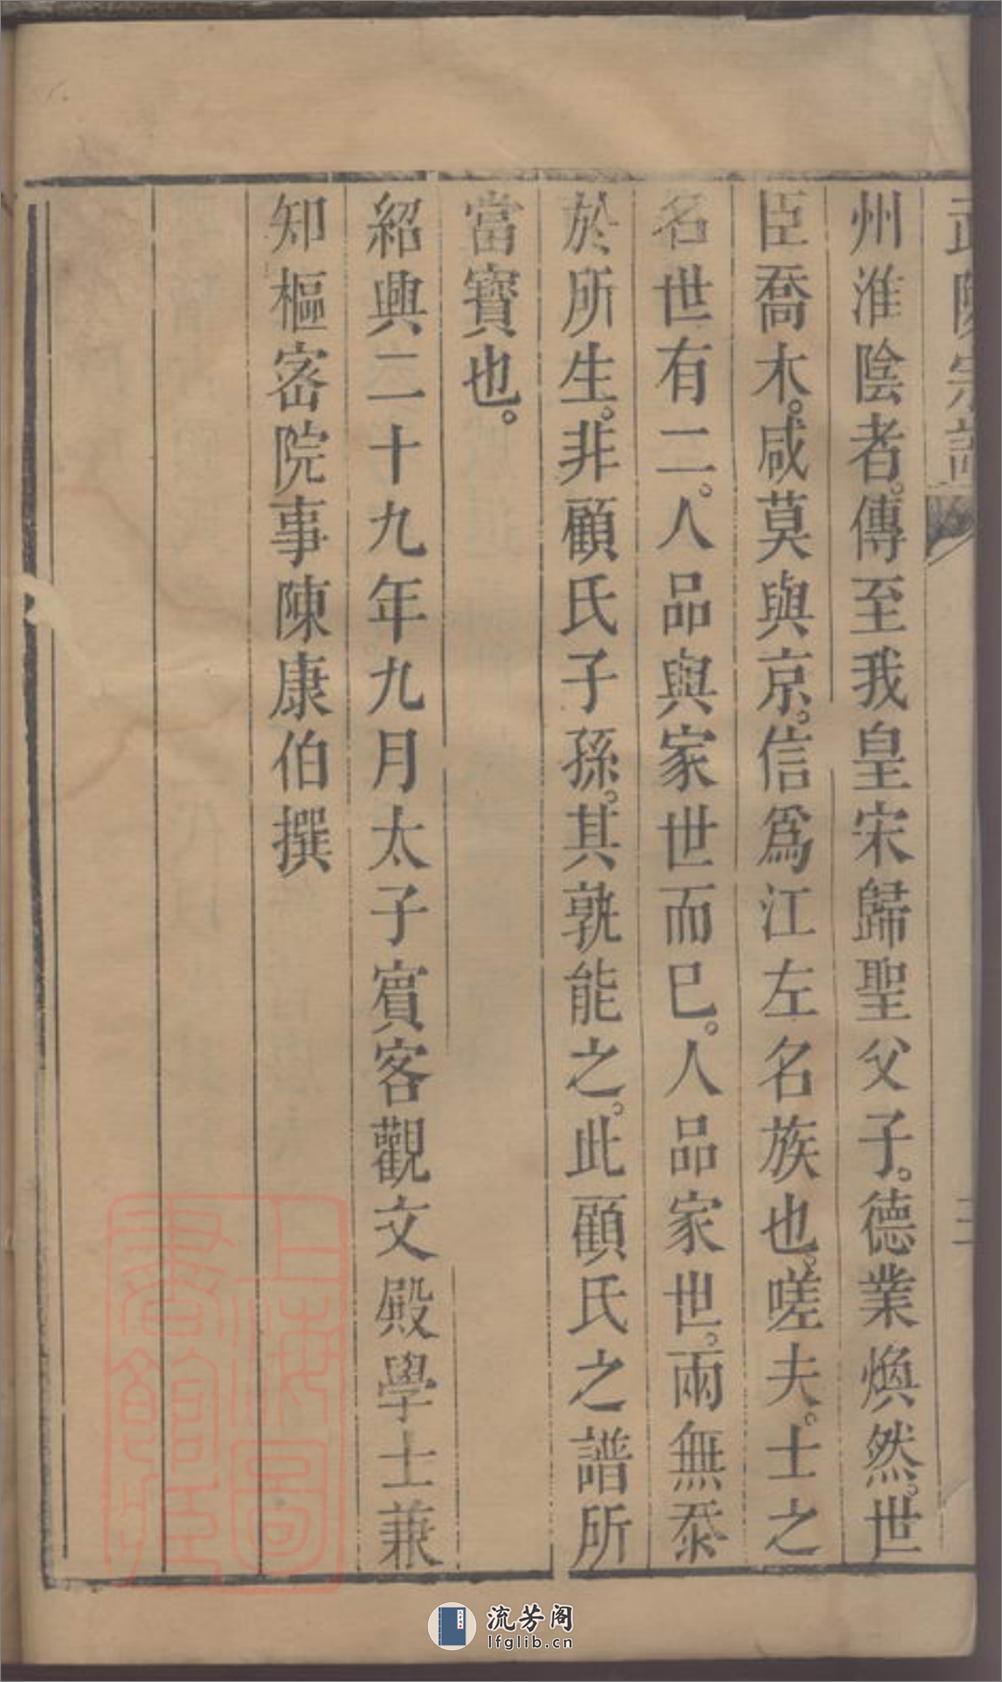 武陵宗譜
三
州淮陰者。傳至我皇宋歸聖父子。德業煥然。世
臣喬木。咸莫與京。信爲江左名族也。嗟夫。士之
名世有二。人品與家世而已。人品家世。兩無忝
於所生。非顧氏子孫。其孰能之。此顧氏之譜所
當寶也。
紹興二十九年九月太子賓客觀文殿學士兼
知樞密院事陳康伯撰
上海圖
書館藏
流芳阁
lfglib.cn